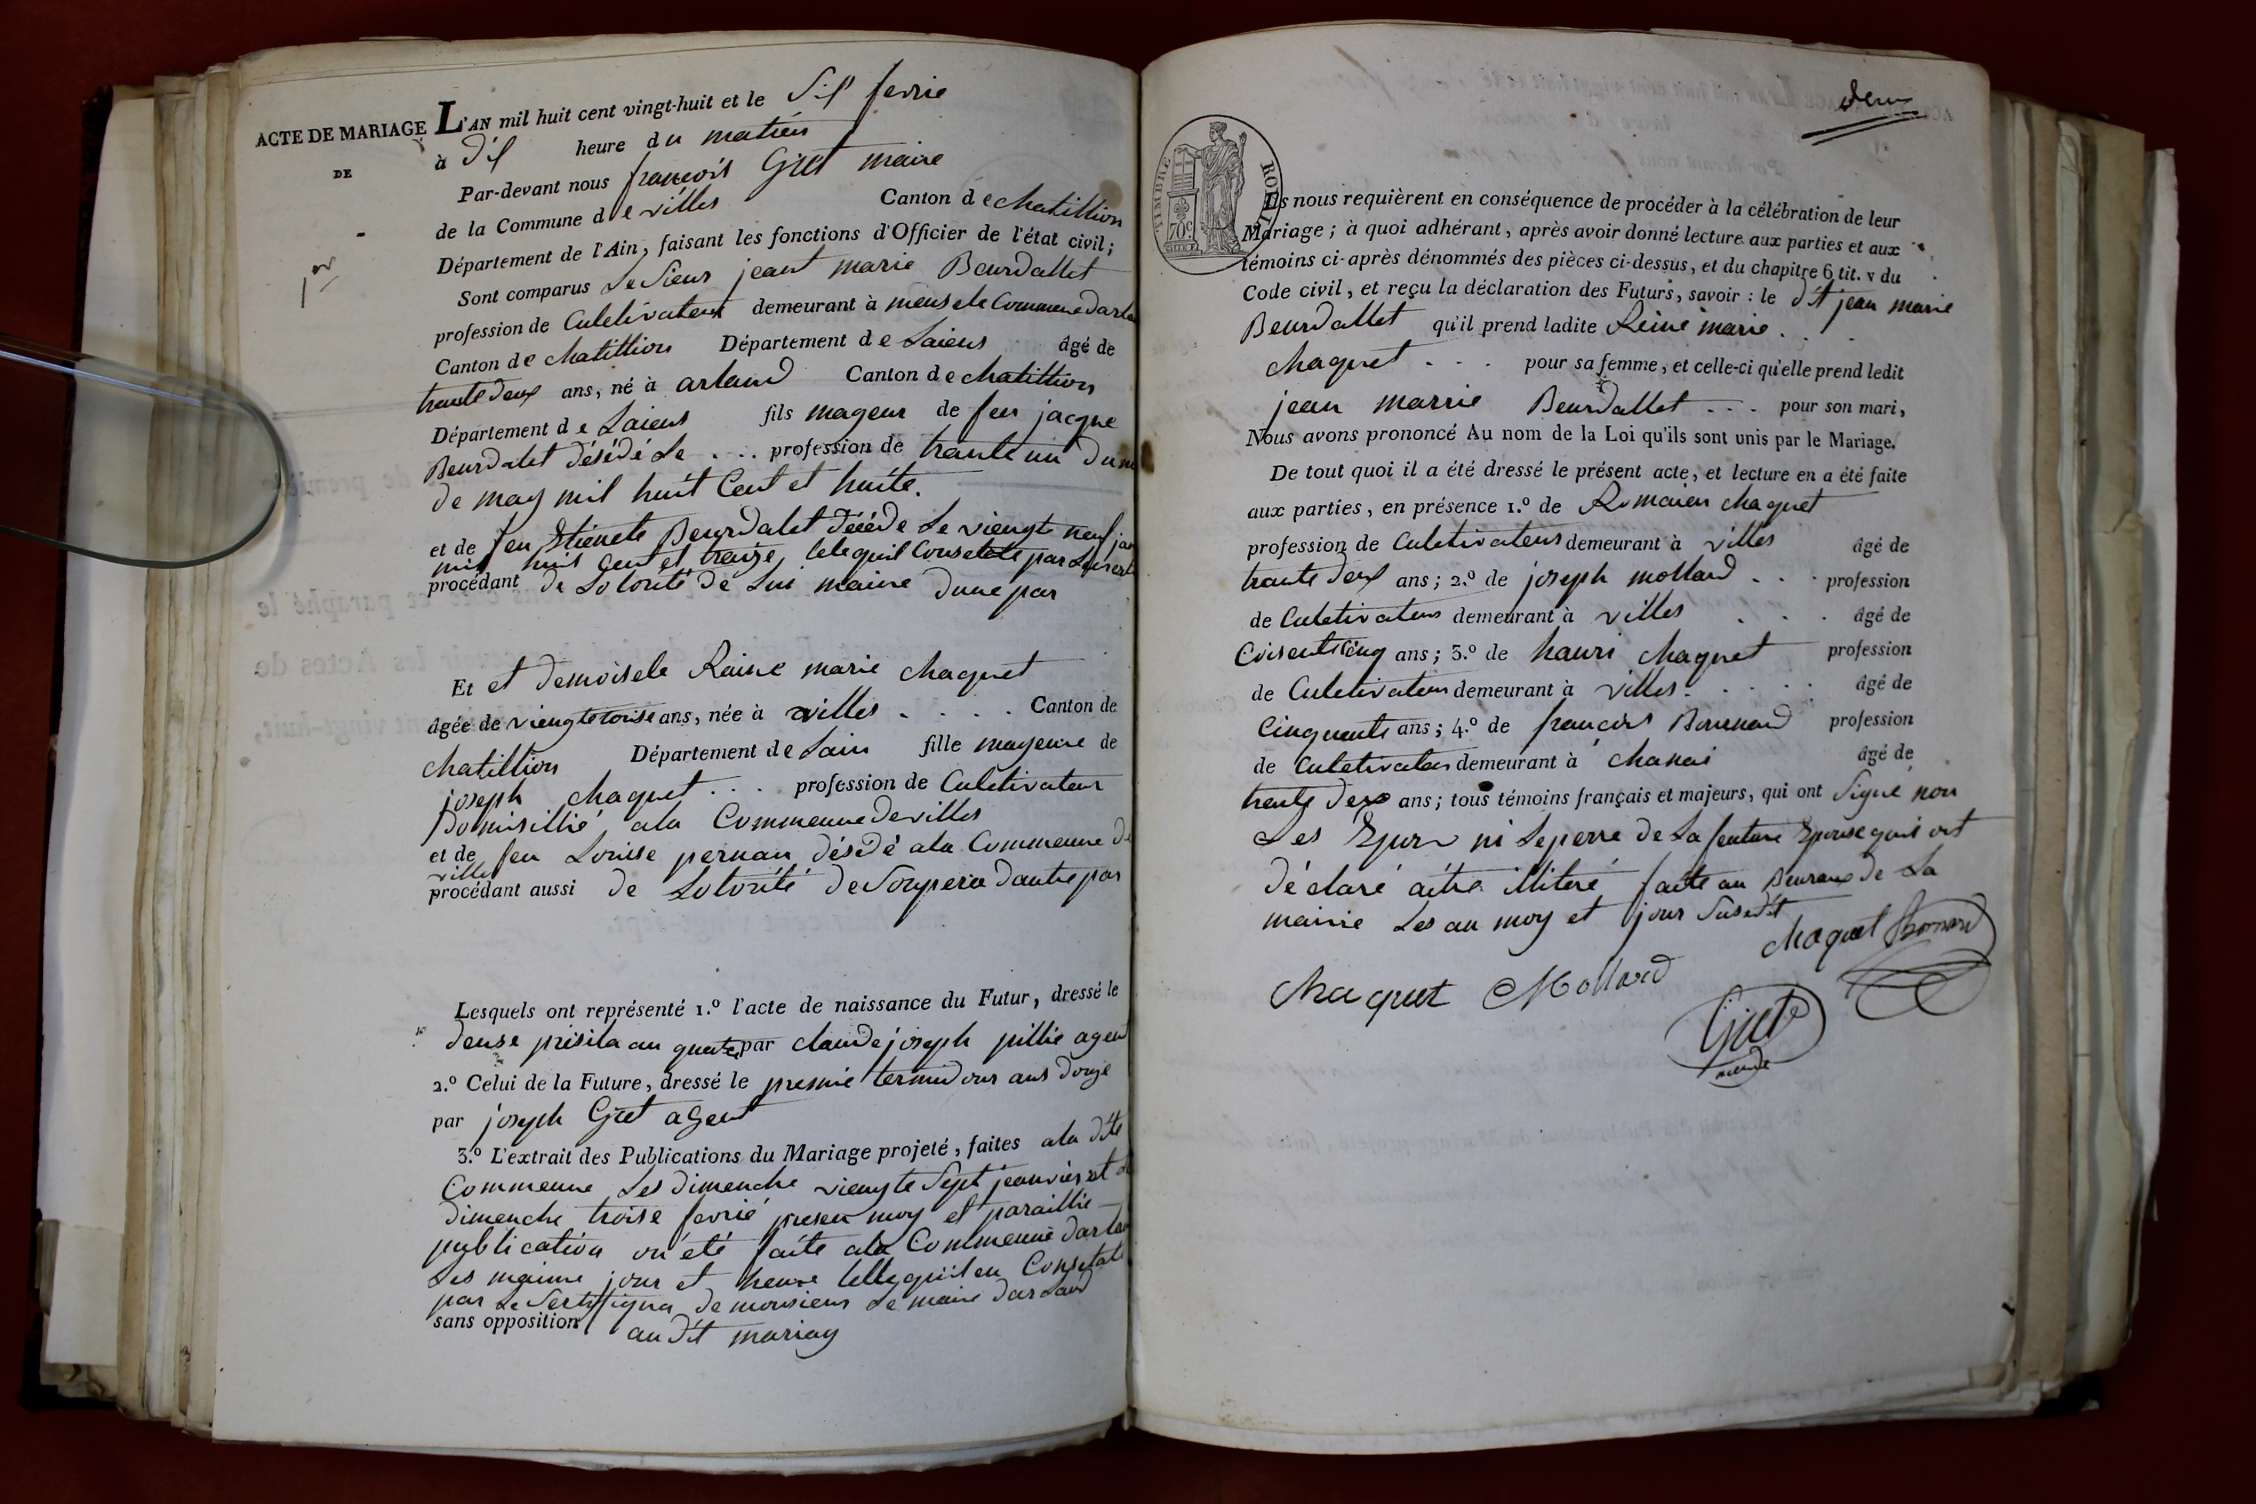 ACTE DE MARIAGE L'AN mil huit cent vingt-huit et le Sis fevrie
DE
à dis heure du matien
Par-devant nous francois Gret maire
de la Commune de villes Canton de chatillion
Département de l'Ain, faisant les fonctions d'Officier de l'état civil;
1er
Sont comparus Le Sieur jeant marie Beurdallet
profession de Culetivateur demeurant à meusele Commune darlau
Canton de chatillion Département de Laiens âgé de
trante deux ans, né à arlaud Canton de chatillion
Département de Laiens fils mageur de feu jacque
Beurdalet désédé Le . . . profession de trante un du m
de may mil huit Cent et huite.
et de feu Etienete Beurdalet déééde Le viengte neuf jan
mil huit Cent et traize, telequil Consetate par
procédant de Lotorité de Lui maime dune par
Et et demoisele Raine marie chaquet
âgée de viengtetoise ans, née à villes . . . . Canton de
chatillion Département de Lain fille mageure de
joseph chaquet . . . profession de Culetivateur
Domisillié ala Commeune de villes
et de feu Louise pernau désédé ala Commeune de
villes
procédant aussi de Lotorité de Sonpere dautre par
Lesquels ont représenté 1.º l'acte de naissance du Futur, dressé le
deuse prisila au quatre par claude joseph pillie agent
2.º Celui de la Future, dressé le premié termidour ans douze
par joseph Gret agent
3.º L'extrait des Publications du Mariage projeté, faites ala dite
Commeune Les dimenche viengte Sept jeanvier et
dimenche troise fevrié presen moy et paraillie
publication on été faite ala Commeune darlau
Les maime jour et heure telle quil en Consetate
par Le Sertifiqua de monsieur Le maire darlaud
sans opposition audit mariag
deux
TIMBRE ROYAL
70c
Ils nous requièrent en conséquence de procéder à la célébration de leur
Mariage; à quoi adhérant, après avoir donné lecture aux parties et aux
témoins ci-après dénommés des pièces ci-dessus, et du chapitre 6 tit. v du
Code civil, et reçu la déclaration des Futurs, savoir : le dit jean marie
Beurdallet qu'il prend ladite Reine marie . .
chaquet . . . pour sa femme, et celle-ci qu'elle prend ledit
jean marrie Beurdallet . . . pour son mari,
Nous avons prononcé Au nom de la Loi qu'ils sont unis par le Mariage.
De tout quoi il a été dressé le présent acte, et lecture en a été faite
aux parties, en présence 1.º de Romaien chaquet
profession de Culetivateur demeurant à villes âgé de
trante deux ans; 2.º de joseph mollard . . . profession
de Culetivateur demeurant à villes . . . âgé de
Coisentecinq ans; 3.º de hauri chaquet profession
de Culetivateur demeurant à villes . . . . âgé de
Cinquante ans; 4.º de francois Bornard profession
de Culetivateur demeurant à chanai âgé de
trente deux ans; tous témoins français et majeurs, qui ont Signé non
Les Epoux ni Le perre de La feuture Epouse quis ont
déclaré aitre illiteré faite au Beuraux de La
mairie Les au moy et jour Susedit
chaquet Bornard
Chaquet Mollard
Gret
maire